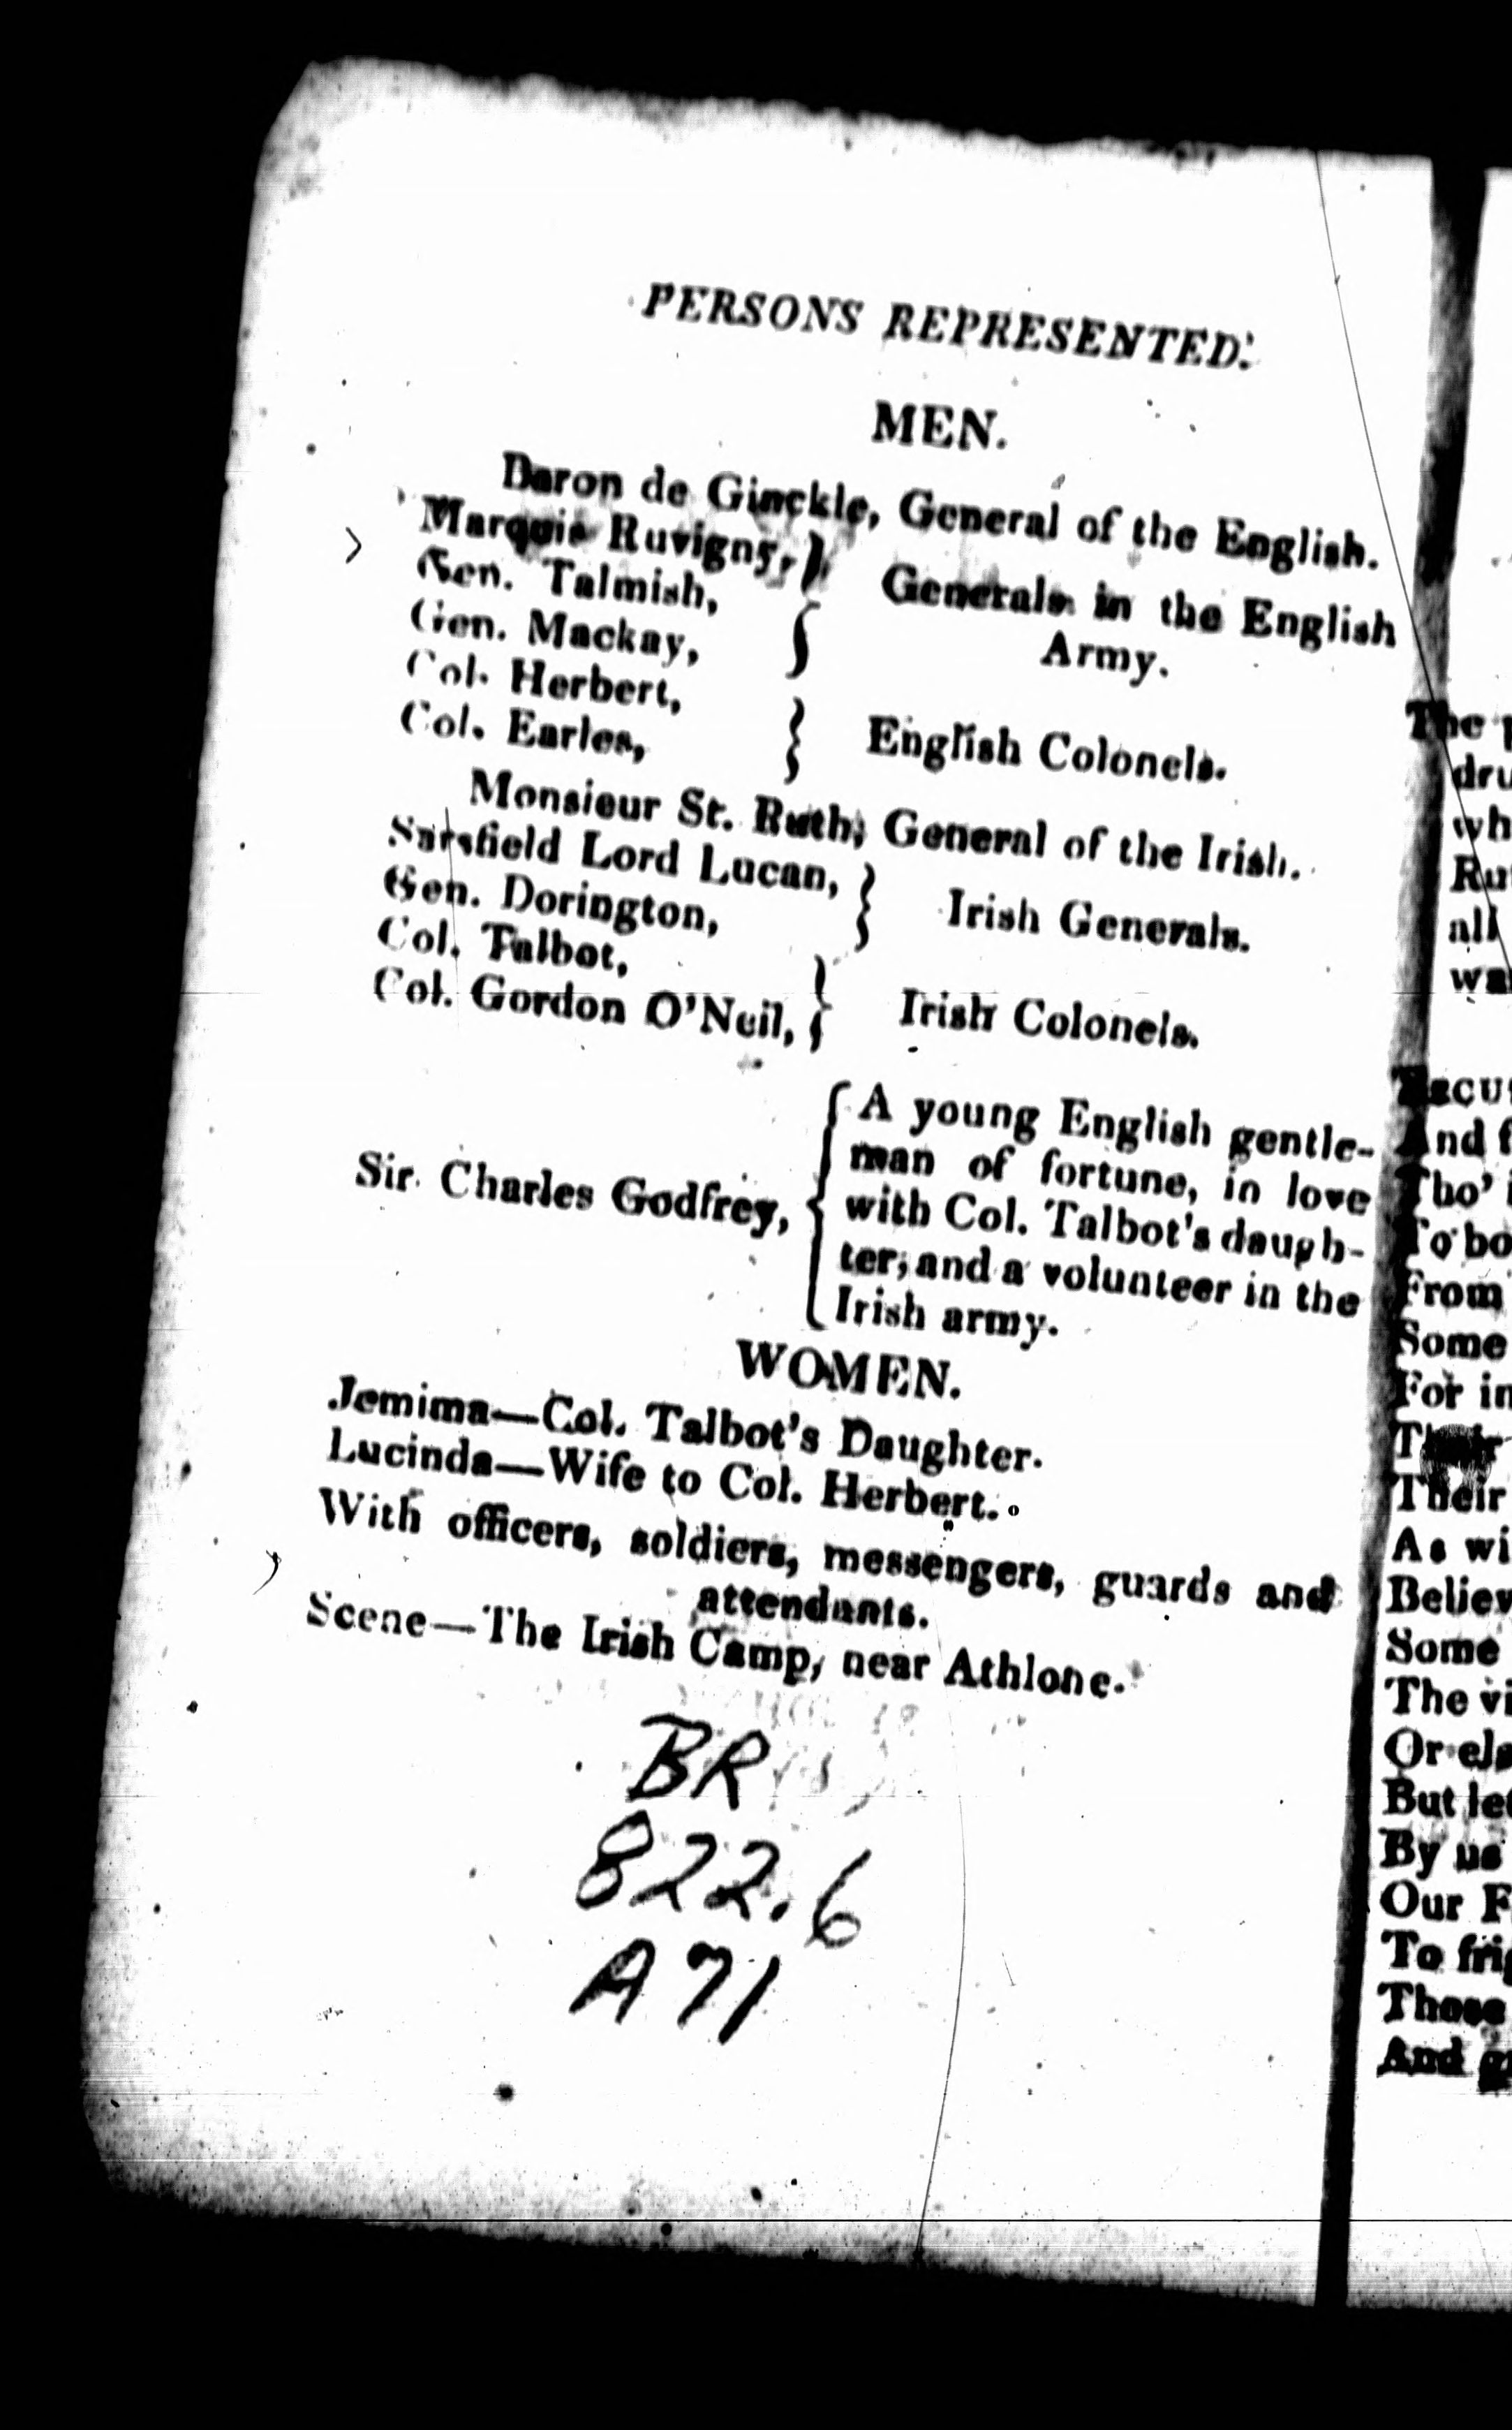 PERSONS REPRESENTED.
MEN.
Baron de Ginckle, General of the English.
Marquis Ruvigny, }
Gen. Talmish, } Generals in the English
Gen. Mackay, } Army.
Col. Herbert, }
Col. Earles, } English Colonels.
Monsieur St. Ruth, General of the Irish.
Sarsfield Lord Lucan, }
Gen. Dorington, } Irish Generals.
Col. Talbot, }
Col. Gordon O'Neil, } Irish Colonels.
Sir Charles Godfrey, { A young English gentle-
man of fortune, in love
with Col. Talbot's daugh-
ter, and a volunteer in the
Irish army.
WOMEN.
Jemima—Col. Talbot's Daughter.
Lucinda—Wife to Col. Herbert.
With officers, soldiers, messengers, guards and
attendants.
Scene—The Irish Camp, near Athlone.
BR
822.6
A71
The
dru
wh
Rut
all
wa
And f
Tho'
To bo
From
Some
For in
Their
Their
As wi
Believ
Some
The vi
Or els
But let
By us
Our F
To frig
Those
And g